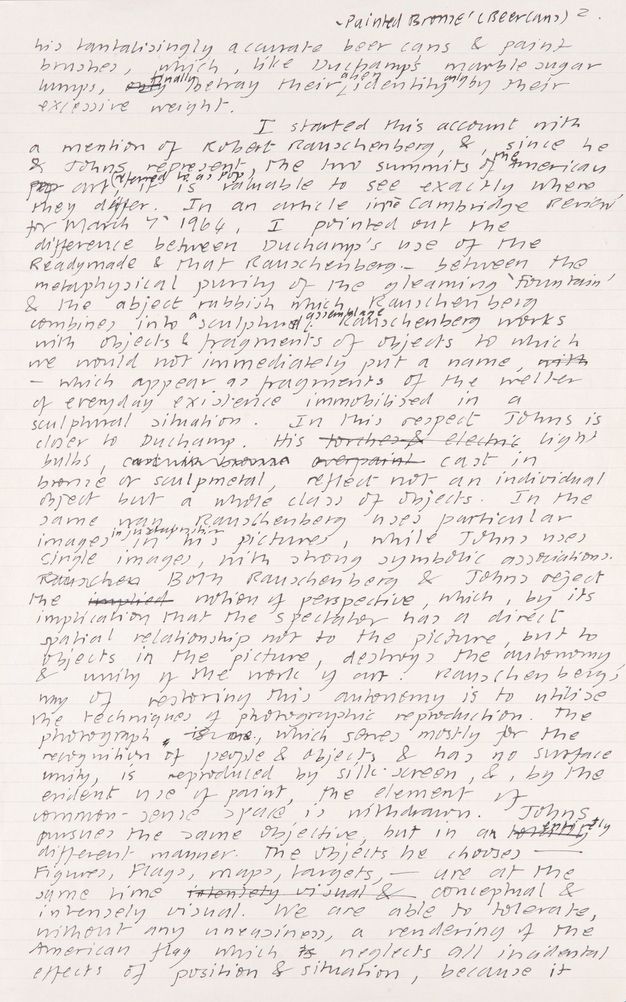 'Painted Bronze' (Beercans) 2.
his tantalisingly accurate beer cans & paint
brushes, which, like Duchamp's marble sugar
lumps, finally betray their alien identity only by their
excessive weight.
I started this account with
a mention of Robert Rauschenberg, &, since he
& Johns represent the two summits of the American
art (referred to as Pop), it is valuable to see exactly where
they differ. In an article in Cambridge Review
for March 7th 1964, I pointed out the
difference between Duchamp's use of the
Readymade & that Rauschenberg – between the
metaphysical purity of the gleaming 'Fountain'
& the abject rubbish which Rauschenberg
combines into a sculptural assemblage. Rauschenberg works
with objects & fragments of objects to which
we would not immediately put a name, with
– which appear as fragments of the welter
of everyday existence immobilised in a
sculptural situation. In this respect Johns is
closer to Duchamp. His torches & electric light
bulbs, overpaint cast in
bronze or sculpmetal, reflect not an individual
object but a whole class of objects. In the
same way Rauschenberg uses particular
images in juxtaposition in his pictures, while Johns uses
single images, with strong symbolic associations.
Rauschen Both Rauschenberg & Johns reject
the implied notion of perspective, which, by its
implication that the spectator has a direct
spatial relationship not to the picture, but to
objects in the picture, destroys the autonomy
& unity of the work of art. Rauschenberg's
way of restoring this autonomy is to utilise
the techniques of photographic reproduction. The
photograph, which serves mostly for the
recognition of people & objects & has no surface
unity, is reproduced by silk-screen, & by the
evident use of paint, the element of
common-sense space is withdrawn. Johns
pursues the same objective, but in an entirely
different manner. The objects he chooses –
Figures, Flags, maps, targets, – are at the
same time intensely visual & conceptual &
intensely visual. We are able to tolerate,
without any uneasiness, a rendering of the
American flag which neglects all incidental
effects of position & situation, because it